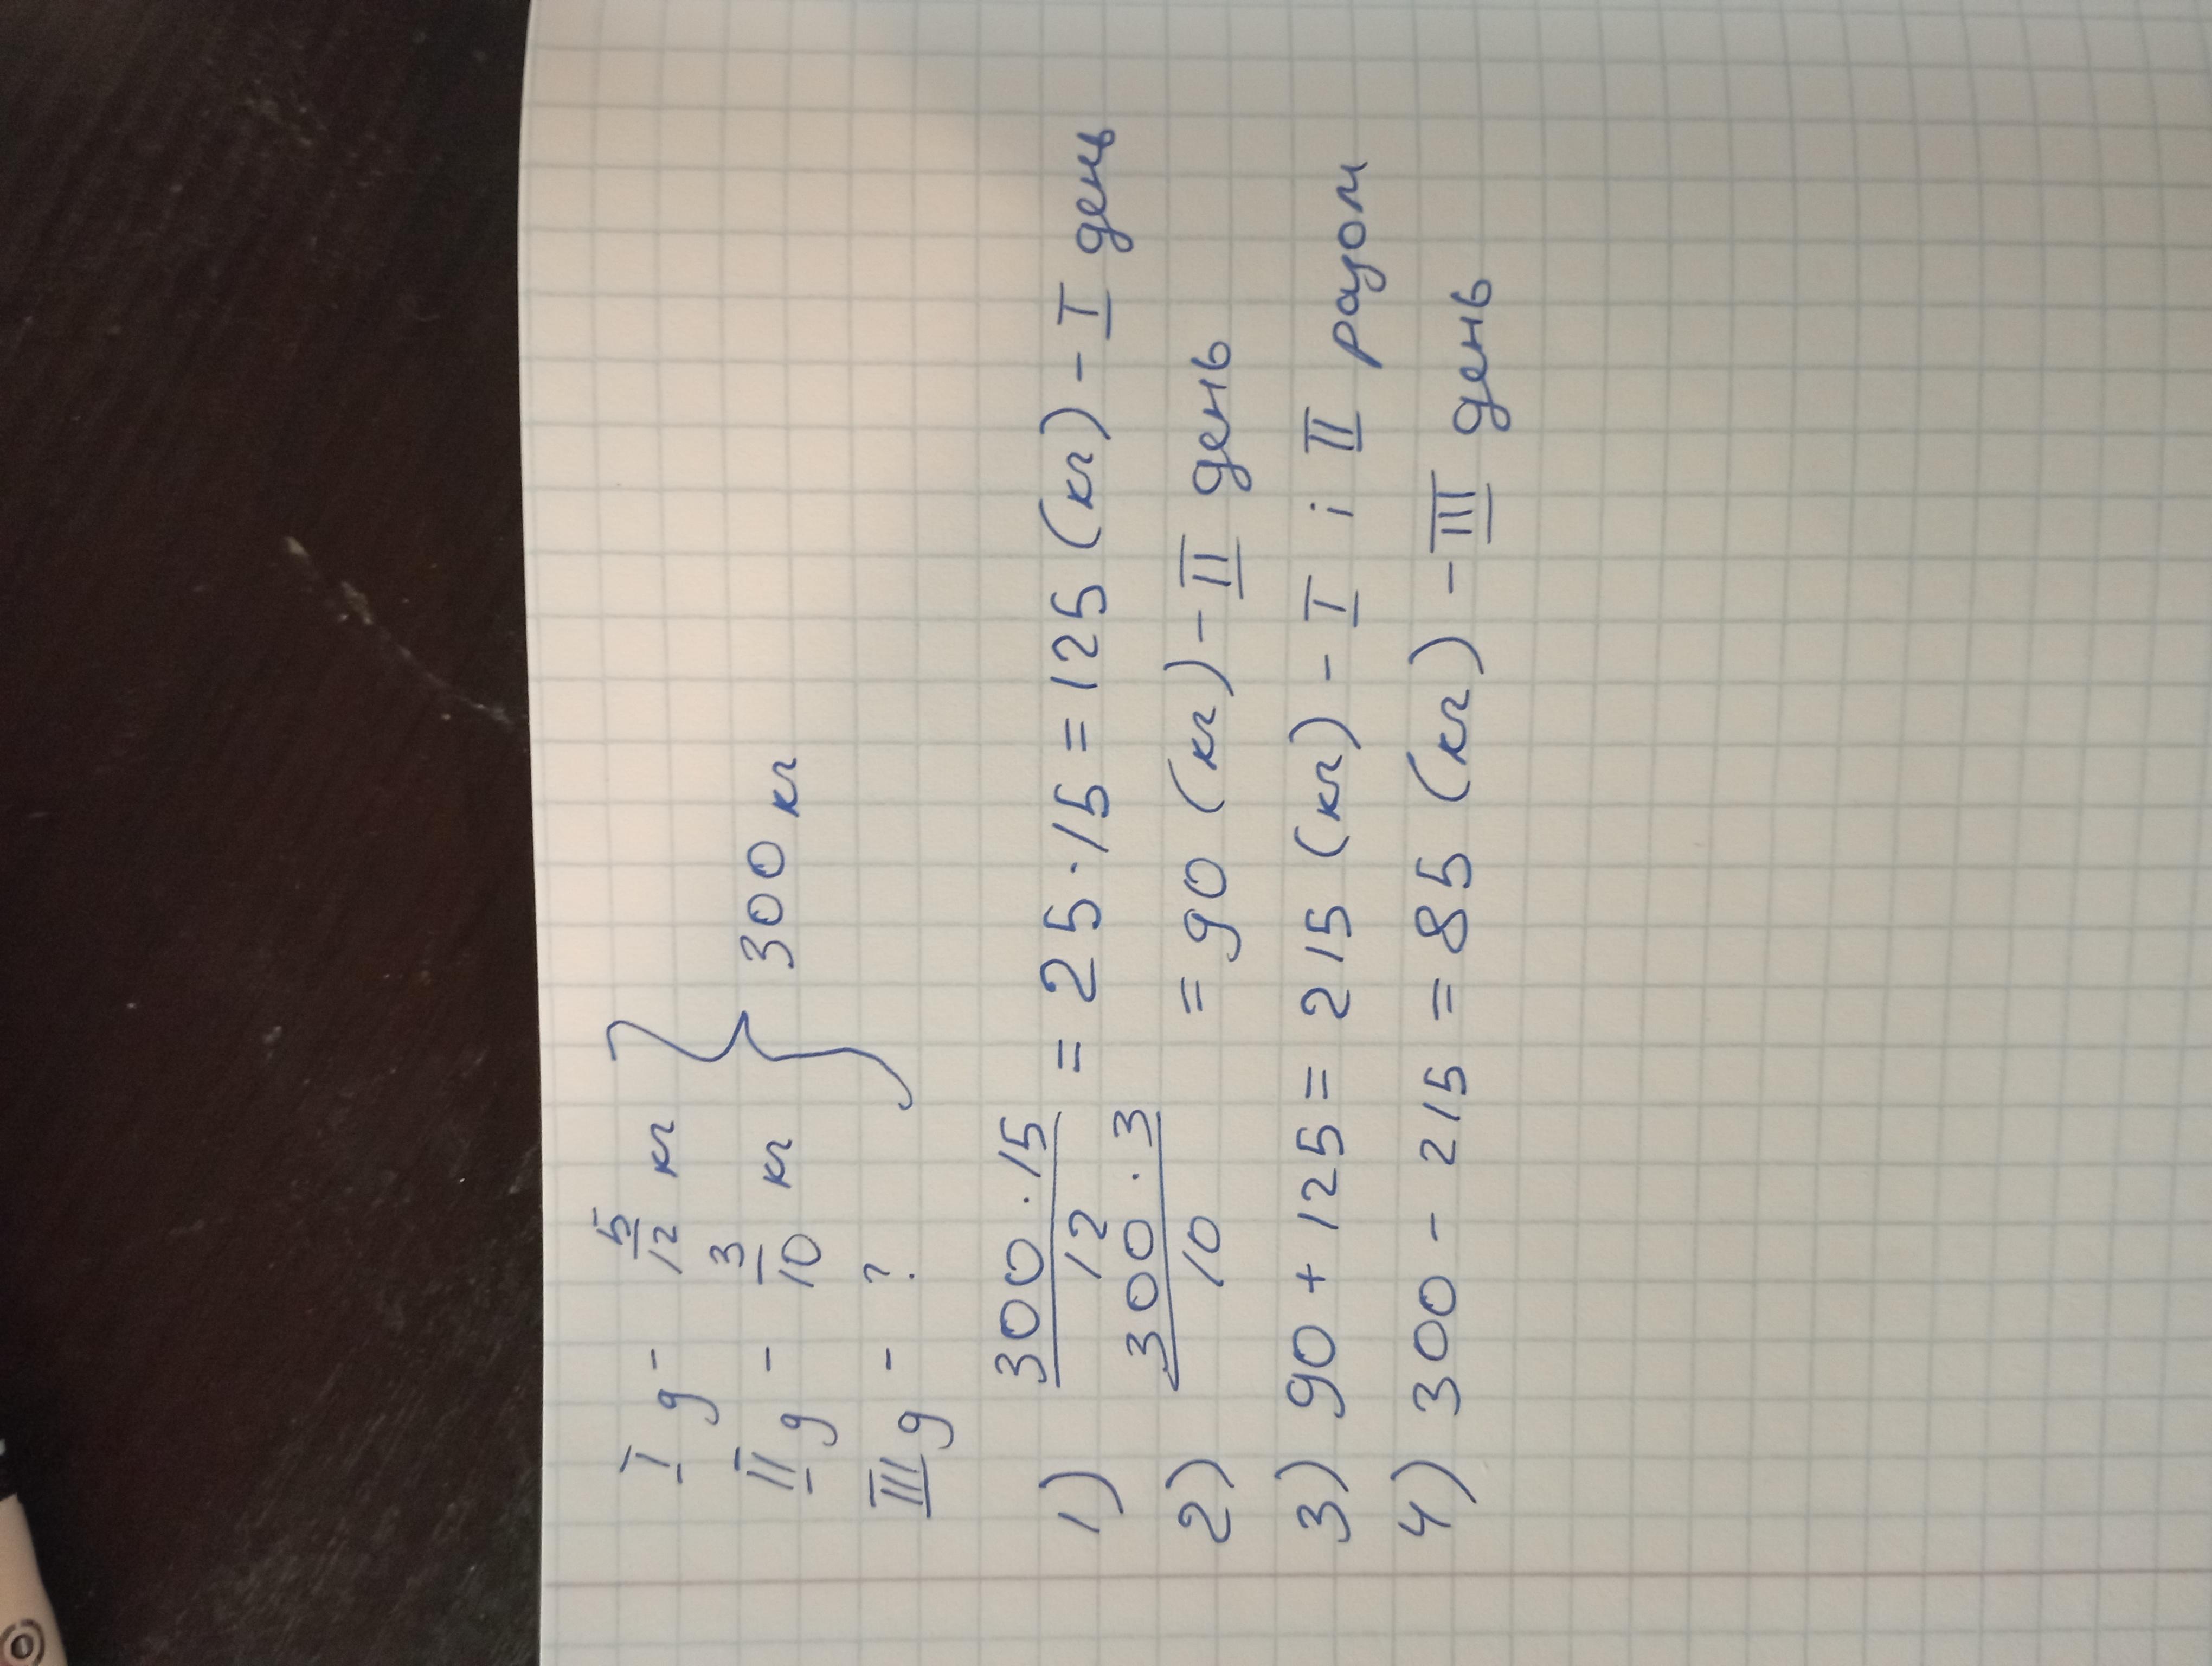 I д - 5/12 кг
II д - 3/10 кг } 300 кг
III д - ?
1) 300 · 15/12 = 25 · 15 = 125 (кг) - I день
2) 300 · 3/10 = 90 (кг) - II день
3) 90 + 125 = 215 (кг) - I і II разом
4) 300 - 215 = 85 (кг) - III день